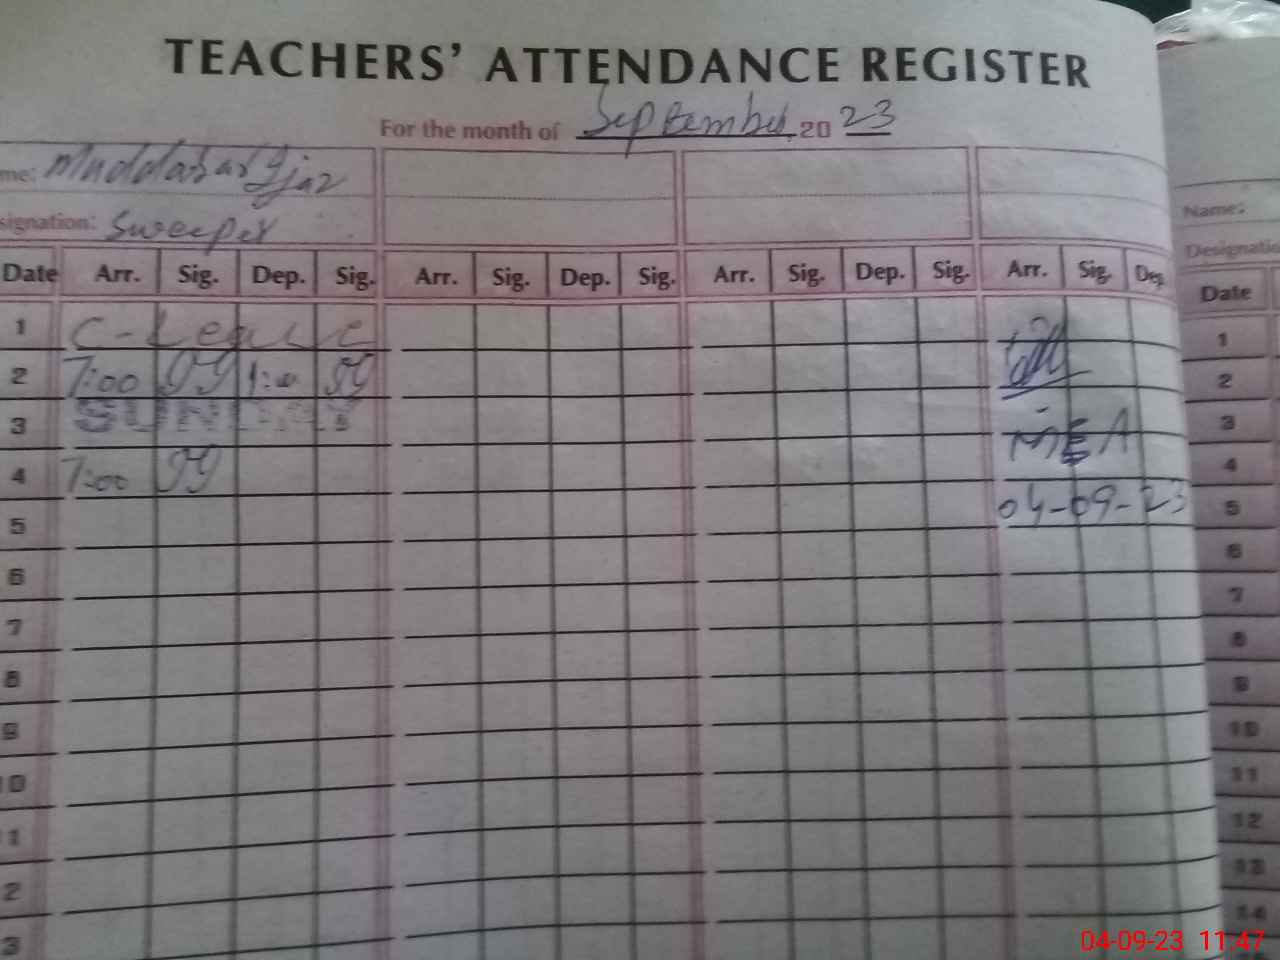 TEACHERS' ATTENDANCE REGISTER
For the month of September 2023
me: Muddasar Ijaz
signation: Sweeper
Date Arr. Sig. Dep. Sig. Arr. Sig. Dep. Sig. Arr. Sig. Dep. Sig. Arr. Sig. Dep
1 C-Leave
2 7:00 1:00
3 SUNDAY
4 7:00
MEA
5 04-09-23
6
7
8
9
10
1
2
3
Name:
Designatio
Date
1
2
3
4
5
6
7
8
9
10
11
12
13
14
04-09-23 11:47